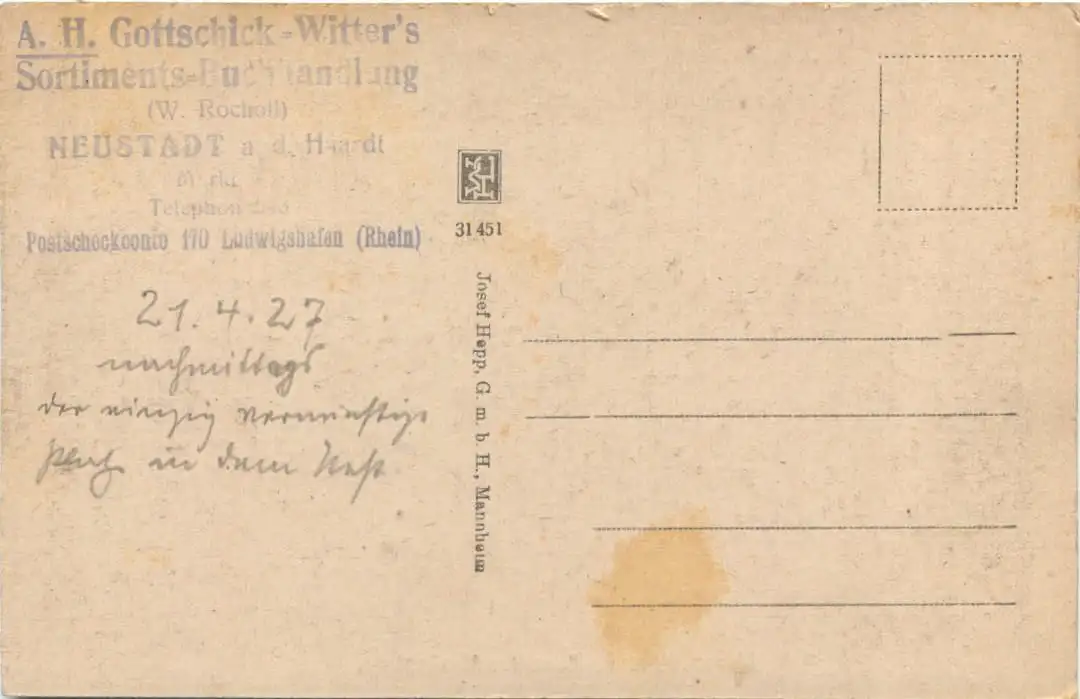 A. H. Gottschick-Witter's
Sortiments-Buchhandlung
(W. Rocholl)
NEUSTADT a. d. Haardt
Telephon
Postscheckconto 170 Ludwigshafen (Rhein)
21.4.27
nachmittags
der einzig vernünftige
Platz in dem Nest
31451
Josef Hepp, G. m. b. H., Mannheim